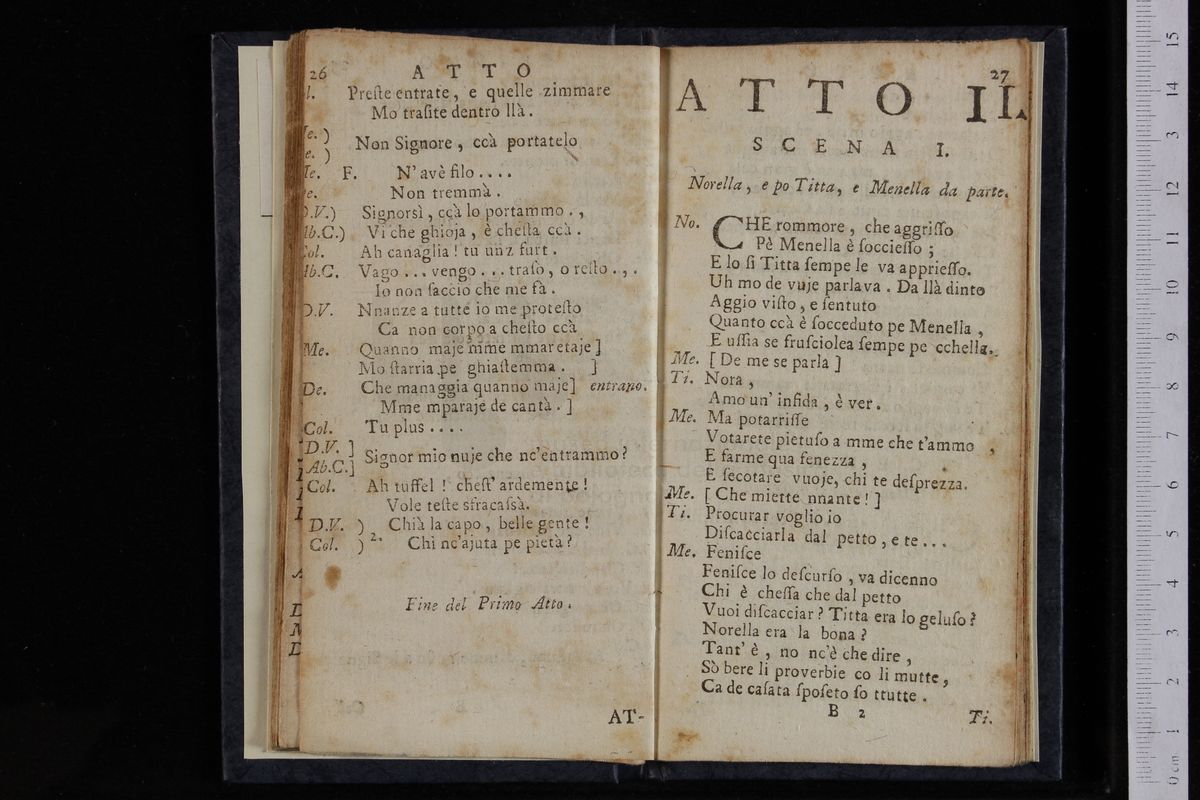 26 A T T O
l. Preſte entrate, e quelle zimmare
Mo traſite dentro llà.
e. )
e. ) Non Signore, ccà portatelo
e. F. N' avè filo....
e. Non tremmà.
D.V.) Signorsì, ccà lo portammo.,
Ab.C.) Vi che ghioja, è cheſta ccà.
Col. Ah canaglia! tu unz furt.
Ab.C. Vago... vengo... traſo, o reſto.,.
Io non ſaccio che me fà.
D.V. Nnanze a tutte io me proteſto
Ca non corpo a cheſto ccà
Me. Quanno maje mme mmaretaje]
Mo ſtarria pe ghiaſtemma. ]
De. Che managgia quanno maje] entrano.
Mme mparaje de cantà. ]
Col. Tu plus....
D.V. ]
Ab.C.] Signor mio nuje che nc'entrammo?
Col. Ah tuffel! cheſt' ardemente!
Vole teſte sfracaſsà.
D.V. ) Chià la capo, belle gente!
Col. ) 2. Chi nc'ajuta pe pietà?
Fine del Primo Atto.
AT-
27
A T T O II.
S C E N A I.
Norella, e po Titta, e Menella da parte.
No. CHE rommore, che aggriſſo
Pè Menella è ſoccieſſo;
E lo ſi Titta ſempe le va apprieſſo.
Uh mo de vuje parlava. Da llà dinto
Aggio viſto, e ſentuto
Quanto ccà è ſocceduto pe Menella,
E uſſia se fruſciolea ſempe pe cchella.
Me. [ De me se parla ]
Ti. Nora,
Amo un' infida, è ver.
Me. Ma potarriſſe
Votarete pietuſo a mme che t'ammo,
E farme qua fenezza,
E ſecotare vuoje, chi te deſprezza.
Me. [ Che miette nnante! ]
Ti. Procurar voglio io
Diſcacciarla dal petto, e te...
Me. Feniſce
Feniſce lo deſcurſo, va dicenno
Chi è cheſſa che dal petto
Vuoi diſcacciar? Titta era lo geluſo?
Norella era la bona?
Tant' è, no nc'è che dire,
Sò bere li proverbie co li mutte,
Ca de caſata ſpoſeto ſo ttutte.
B 2
Ti.